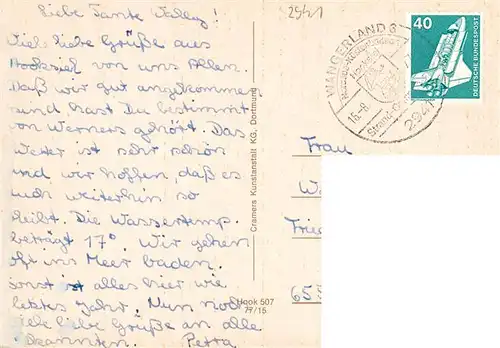 Liebe Tante Wally!
Viele liebe Grüße aus
Hooksiel von uns Allen.
Daß wir gut angekommen
sind hast Du bestimmt
von Werners gehört. Das
Wetter ist sehr schön
und wir hoffen, daß es
auch weiterhin so
bleibt. Die Wassertemp.
beträgt 17°. Wir gehen
oft ins Meer baden.
sonst ist alles hier wie
letztes Jahr. Nun noch
viele liebe Grüße an alle
Bekannten. Petra
Cramers Kunstanstalt KG, Dortmund
Hook 507
77/15
2941
WANGERLAND 3
16.-8.
294
40
DEUTSCHE BUNDESPOST
Frau
W
Frie
655